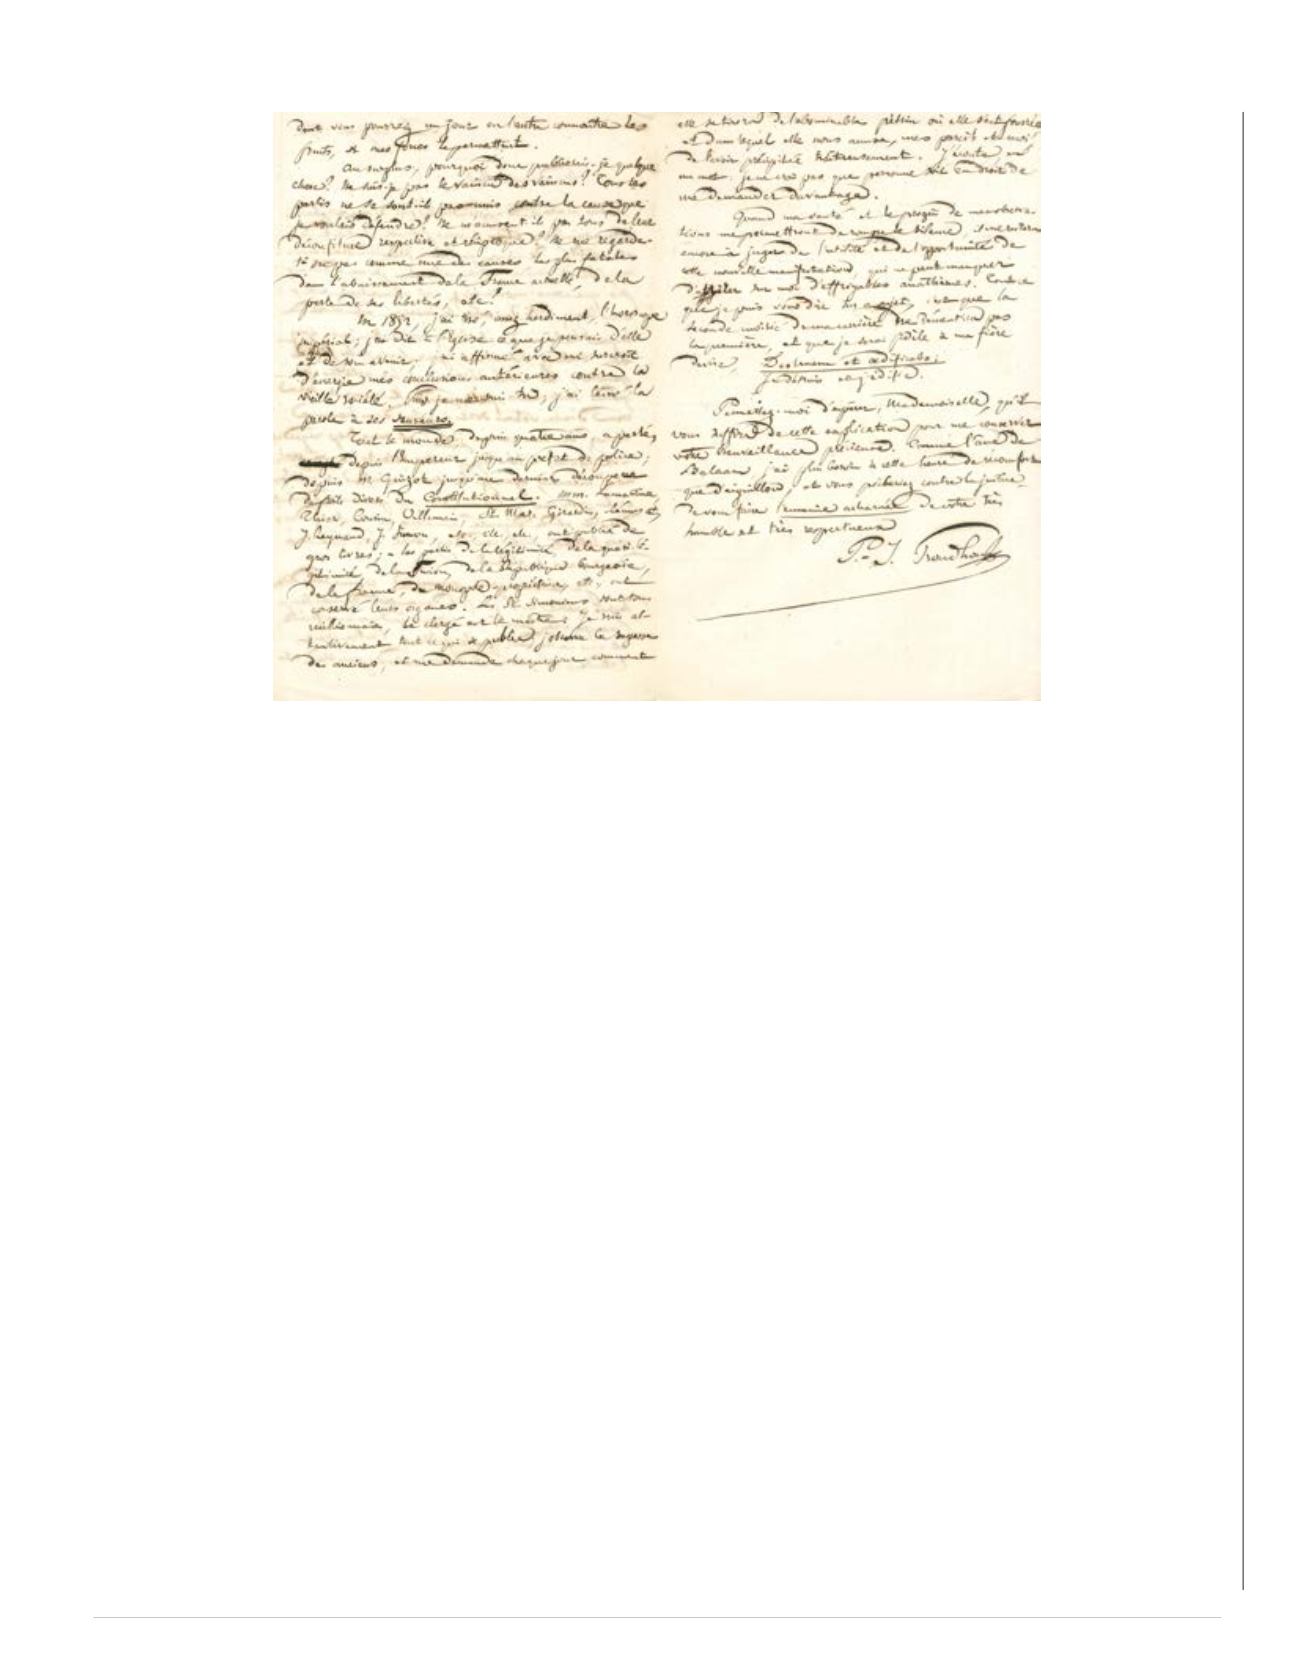 dont vous pourrez un jour ou l'autre connaître les
fruits, si mes forces le permettent.
Au surplus, pourquoi donc publierais-je quelque
chose? Ne suis-je pas le vaincu des vaincus? Tous les
partis ne se sont-ils prononcés contre la cause que
je voulais défendre? Ne m'accusent-ils pas tous de leur
déconfiture respective et réciproque? Ne me regarde-
t-on pas comme une des causes les plus fatales
dans l'abaissement de la France actuelle, de la
perte de ses libertés, etc?
En 1852, j'ai tiré, assez hardiment, l'horoscope
impérial; j'ai dit à l'Église ce que je pensais d'elle
et de son avenir; j'ai affirmé avec un surcroît
d'énergie mes conclusions antérieures contre la
vieille société. Puis je me suis tu; j'ai laissé la
parole à ses sauveurs.
Tout le monde, depuis quatre ans, a parlé,
depuis l'Empereur jusqu'au préfet de police;
depuis M. Guizot jusqu'au dernier découpeur
de faits divers du Constitutionnel. MM. Lamartine,
Thiers, Cousin, Villemain, St Marc Girardin,
J. Reynaud, J. Simon, etc. etc. etc., ont publié de
gros livres; les partis de la légitimité, de la quasi-lé-
gitimité, de la fusion, de la République bourgeoise,
de la
conservé leurs organes. Les St Simoniens sont tous
millionnaires, le clergé est le maître: Je suis at-
tentivement tout ce qui se publie, j'observe la sagesse
des anciens, et me demande chaque jour comment
elle se tirera de l'abominable pétrin où elle s'est fourrée
et dans lequel elle nous accuse, mes pareils et moi
de l'avoir précipitée traîtreusement. J'écoute, en
un mot; je ne crois pas que personne soit en droit de
me demander davantage.
Quand ma santé et le progrès de mes observa-
tions me permettront de rompre le silence, il me restera
encore à juger de l'utilité et de l'opportunité de
cette nouvelle manifestation, qui ne peut manquer
d'attirer sur moi d'effroyables anathèmes. Tout ce
que je puis vous dire à ce sujet, c'est que la
seconde moitié de ma carrière ne démentira pas
la première, et que je serai fidèle à ma fière
devise, Destruam et ædificabo:
Je détruis et j'édifie.
Permettez-moi d'espérer, Mademoiselle, qu'il
vous suffira de cette explication pour me conserver
votre bienveillance précieuse. Comme l'ânesse de
Balaam, j'ai plus besoin à cette heure de réconfort
que d'aiguillon, et vous pécheriez contre la justice
de vous faire l'ennemie acharnée de votre très
humble et très respectueux
P.-J. Proudhon